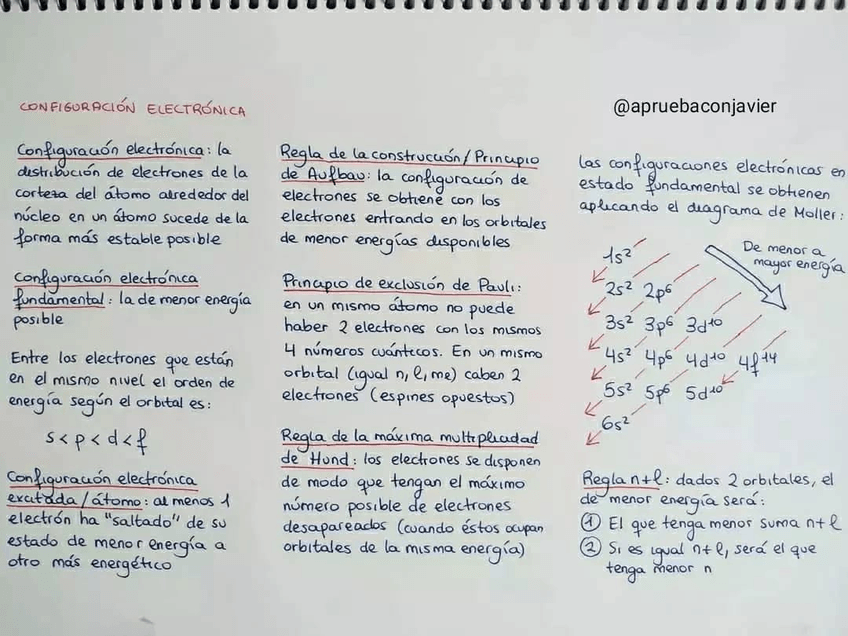 CONFIGURACIÓN ELECTRÓNICA
@apruebaconjavier
Configuración electrónica: la
distribución de electrones de la
corteza del átomo alrededor del
núcleo en un átomo sucede de la
forma más estable posible
Configuración electrónica
fundamental: la de menor energía
posible
Entre los electrones que están
en el mismo nivel el orden de
energía según el orbital es:
s < p < d < f
Configuración electrónica
excitada/átomo: al menos 1
electrón ha "saltado" de su
estado de menor energía a
otro más energético
Regla de la construcción/Principio
de Aufbau: la configuración de
electrones se obtiene con los
electrones entrando en los orbitales
de menor energías disponibles
Principio de exclusión de Pauli:
en un mismo átomo no puede
haber 2 electrones con los mismos
4 números cuánticos. En un mismo
orbital (igual n, l, me) caben 2
electrones (espines opuestos)
Regla de la máxima multiplicidad
de Hund: los electrones se disponen
de modo que tengan el máximo
número posible de electrones
desapareados (cuando éstos ocupan
orbitales de la misma energía)
Las configuraciones electrónicas en
estado fundamental se obtienen
aplicando el diagrama de Moller:
De menor a
mayor energía
1s²
2s² 2p⁶
3s² 3p⁶ 3d¹⁰
4s² 4p⁶ 4d¹⁰ 4f¹⁴
5s² 5p⁶ 5d¹⁰
6s²
Regla n+l: dados 2 orbitales, el
de menor energía será:
① El que tenga menor suma n+l
② Si es igual n+l, será el que
tenga menor n